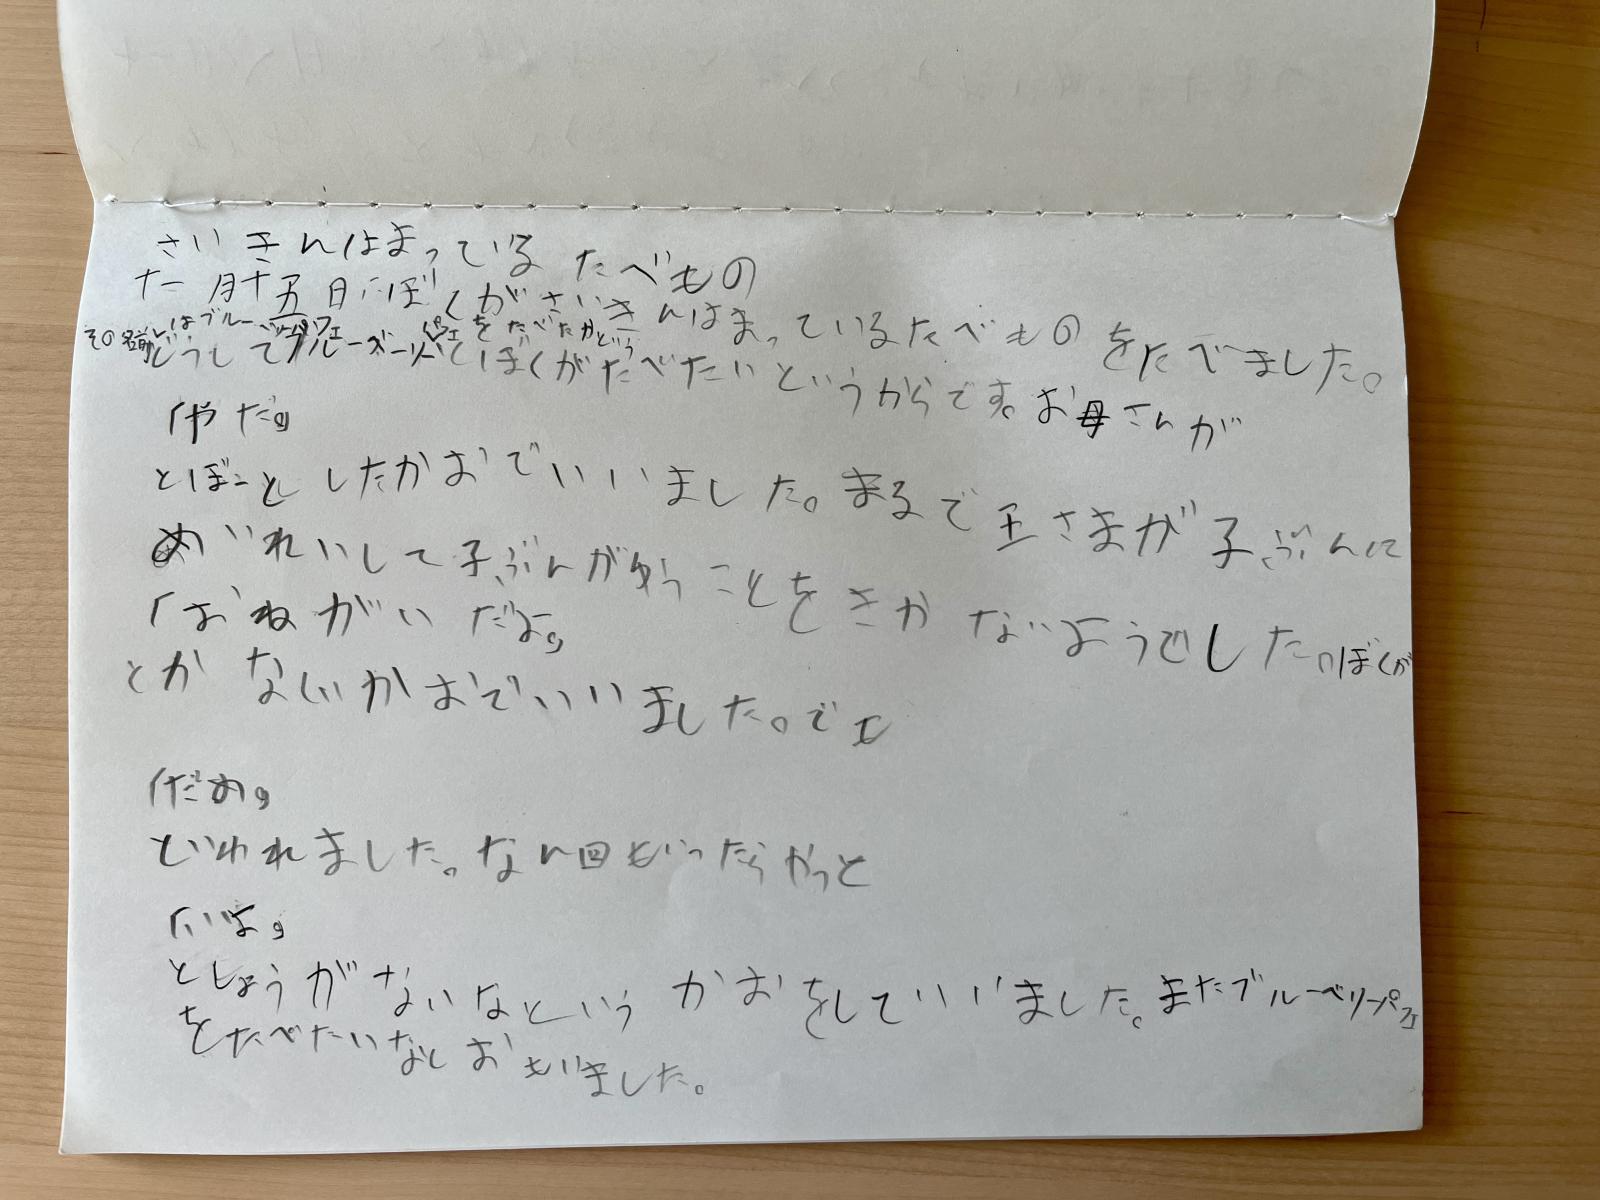 さいきんはまっているたべもの
十一月十五日にぼくがさいきんはまっているたべものをたべました。
その名前はブルーベリーパフェ
どうしてブルーベリーパフェをたべたかという
とぼくがたべたいというからです。お母さんが
「やだ。」
とぼーとしたかおでいいました。まるで王さまが子ぶんに
めいれいして子ぶんがゆうことをきかないようでした。ぼくが
「おねがいだよ。」
とかなしいかおでいいました。でも
「だめ。」
といわれました。なん回もいったらやっと
「いいよ。」
としょうがないなというかおをしていいました。またブルーベリーパフェ
をたべたいなとおもいました。